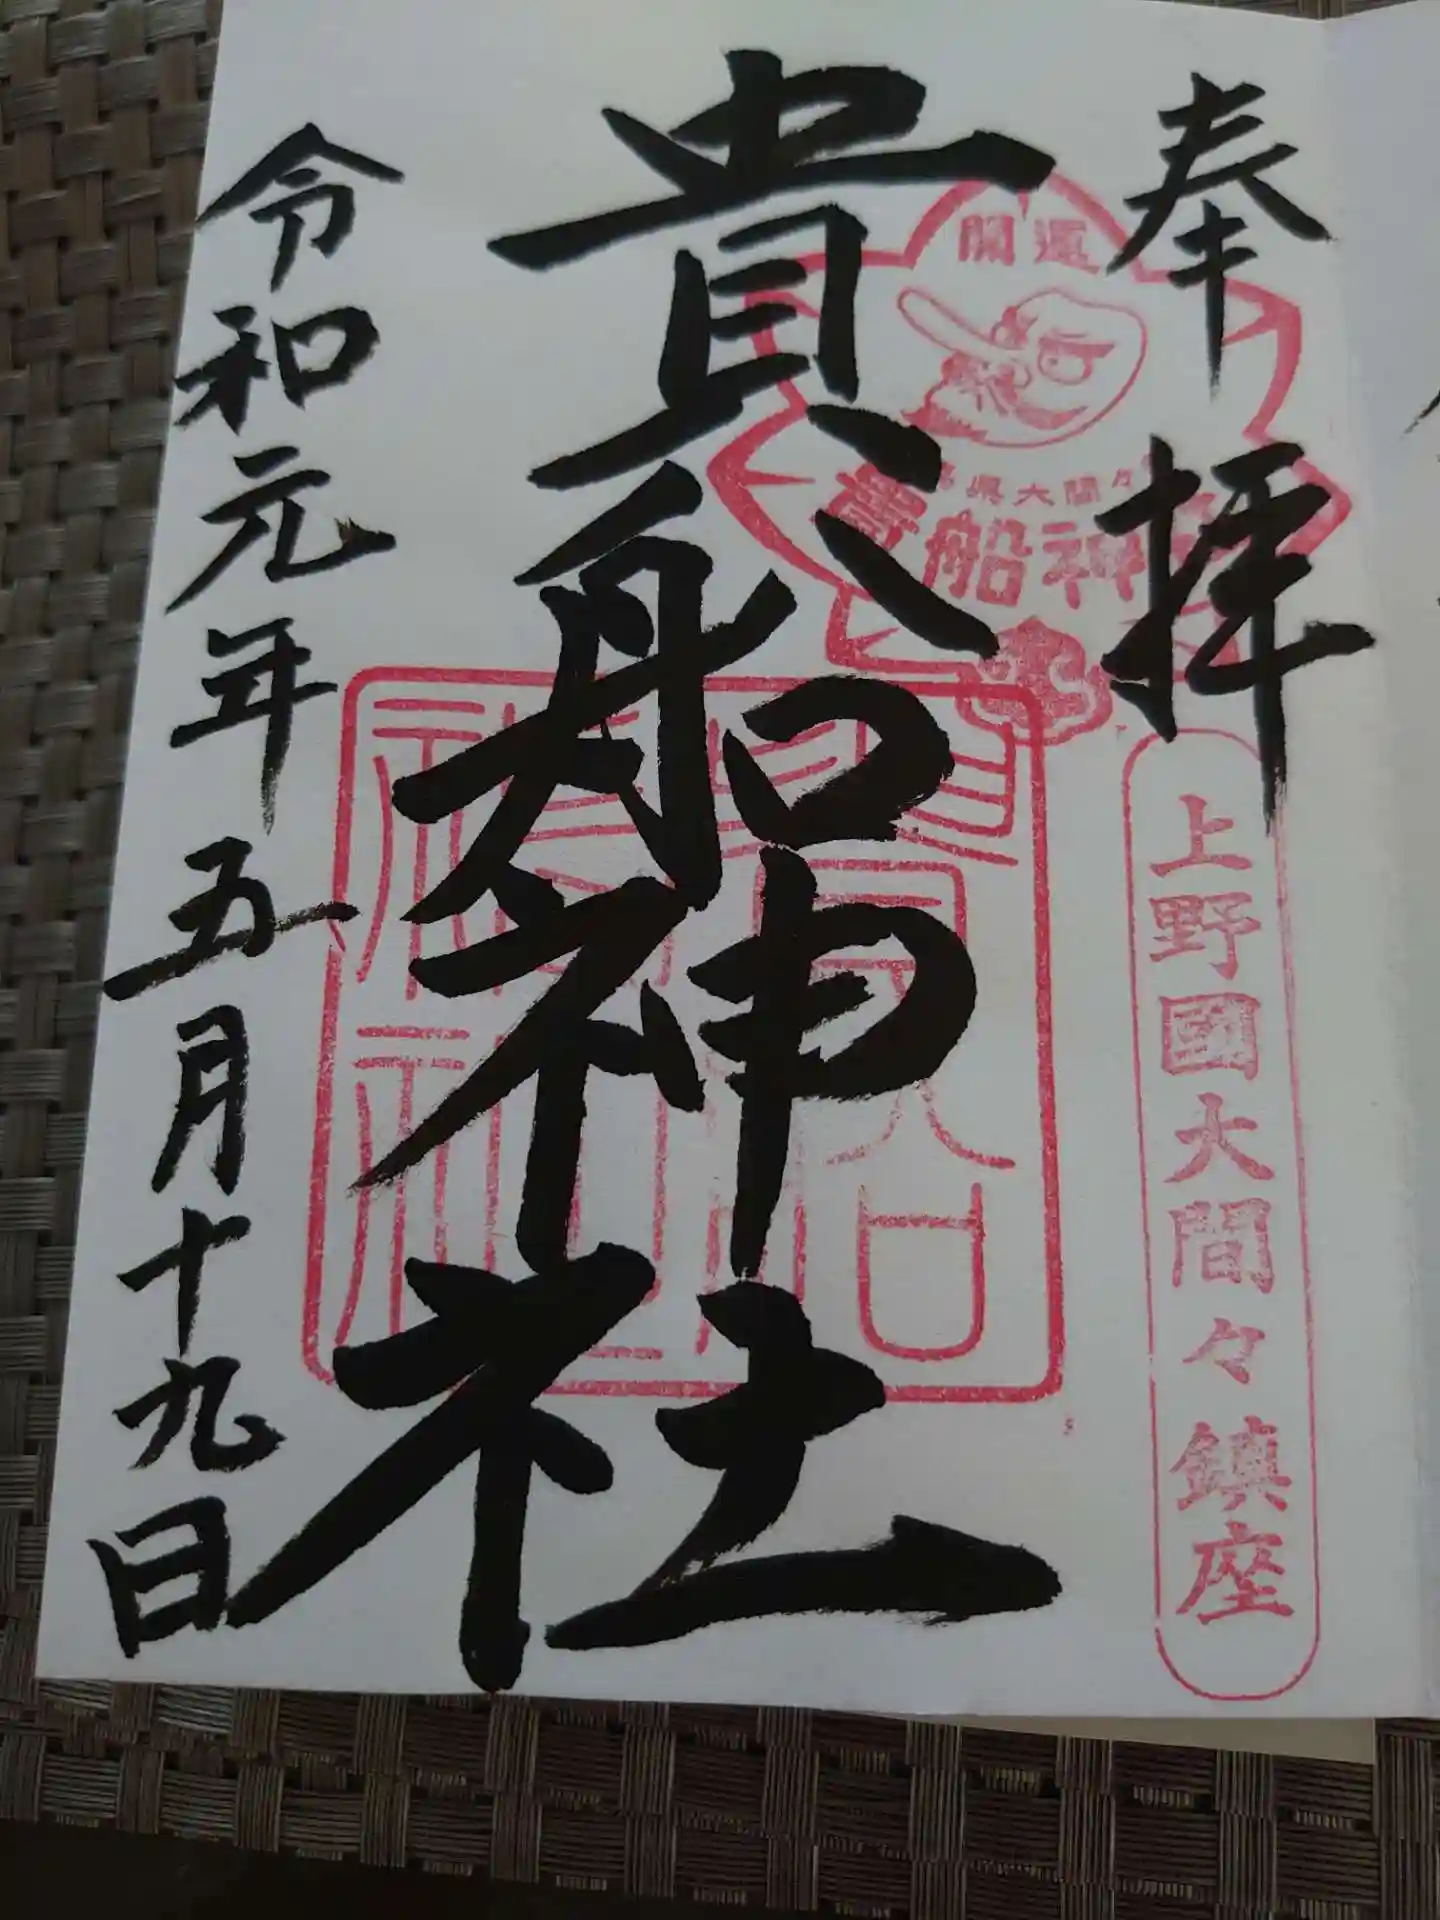 奉拝
開運
県大間々
貴船神
上野國大間々鎮座
貴船神社
令和元年五月十九日